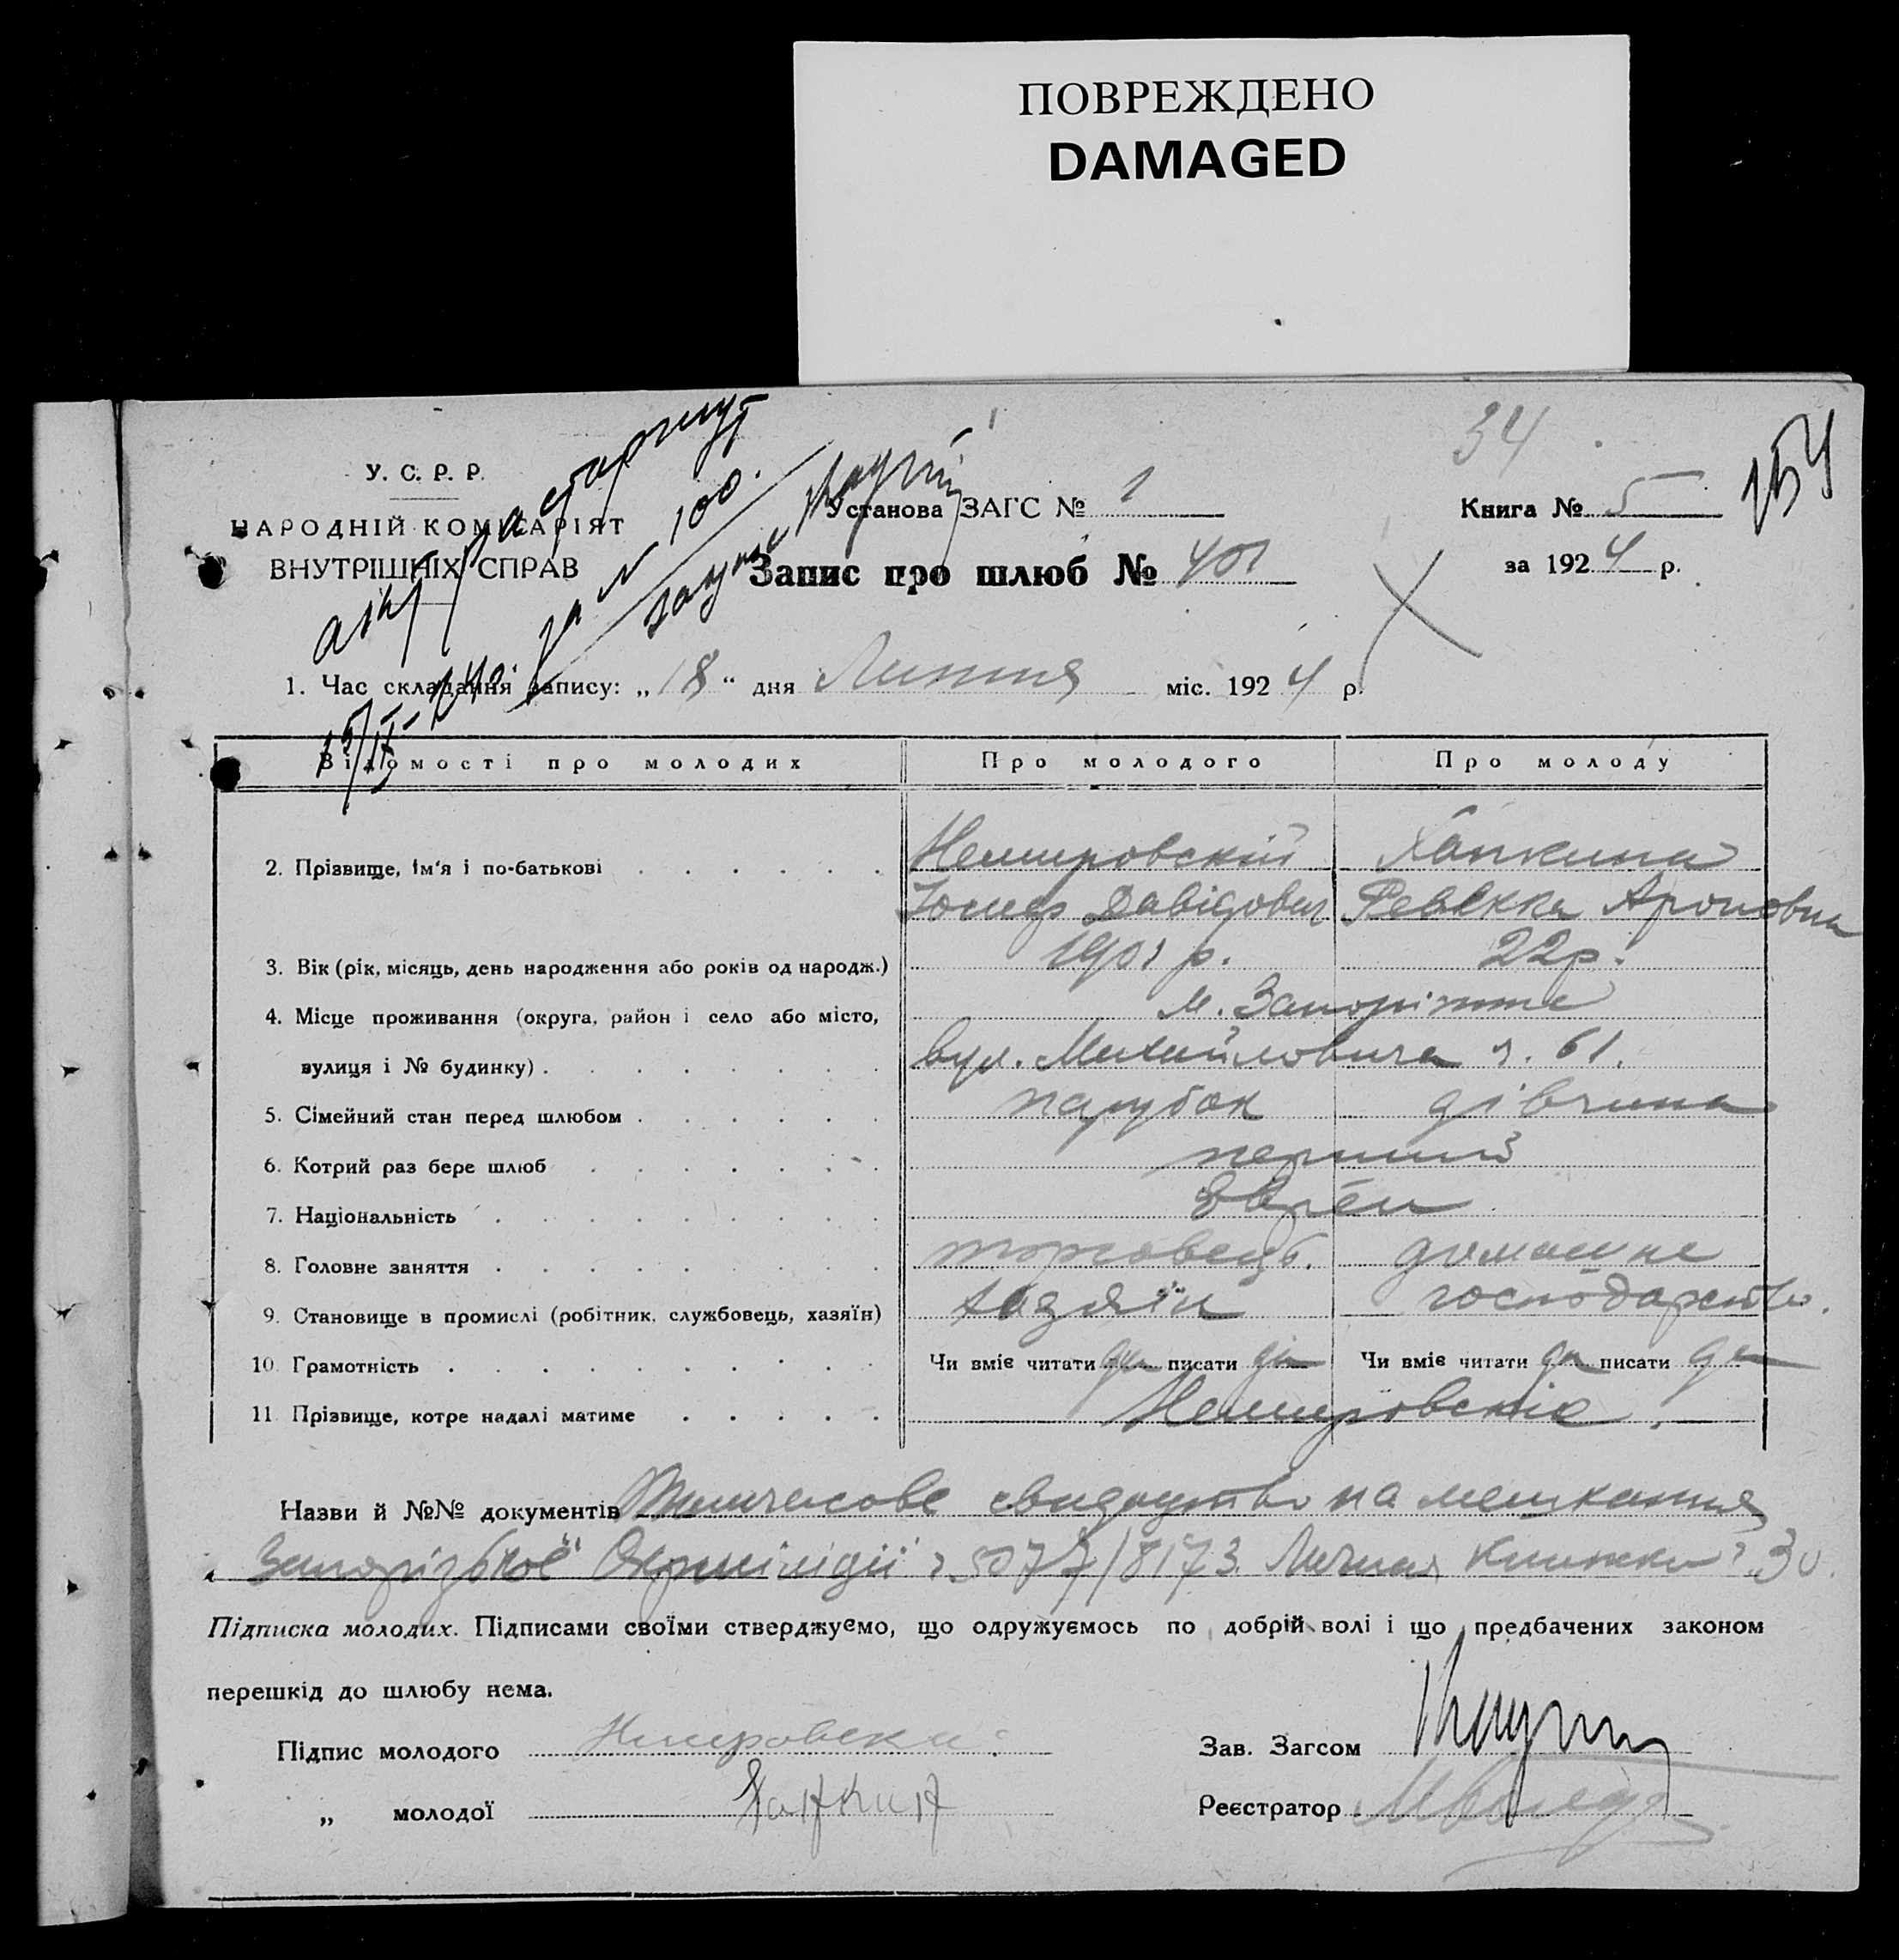 ПОВРЕЖДЕНО
DAMAGED
34
154
У. С. Р. Р.
НАРОДНІЙ КОМІСАРІЯТ
ВНУТРІШНІХ СПРАВ
акт расторгнут
за № 100.
Установа ЗАГС № 1
Книга № 5
Запис про шлюб № 401
за 1924 р.
1. Час складання запису: „18“ дня Липня міс. 1924 р.
Відомості про молодих
Про молодого
Про молоду
2. Прізвище, ім'я і по-батькові
Немировскій
Хапкина
Іосиф Давідович
Ревекка Ароновна
3. Вік (рік, місяць, день народження або років од народж.)
1901 р.
22 р.
4. Місце проживання (округа, район і село або місто,
м. Запоріжжє
вулиця і № будинку)
вул. Михайловича ч. 61.
5. Сімейний стан перед шлюбом
парубок
дівчина
6. Котрий раз бере шлюб
перший
7. Національність
Єврєи
8. Головне заняття
торговець.
домашнє
9. Становище в промислі (робітник, службовець, хазяїн)
хазяїн
господарство.
10. Грамотність
Чи вміє читати да писати да
Чи вміє читати да писати да
11. Прізвище, котре надалі матиме
Немировскіе.
Назви й №№ документів Тимчасове свидоцтво на мешкання
Запорізької Окрміліції ч 5077/8173. Личная книжка ч 30.
Підписка молодих. Підписами своїми стверджуємо, що одружуємось по добрій волі і що предбачених законом
перешкід до шлюбу нема.
Підпис молодого
Зав. Загсом
„ молодої Хапкин
Реєстратор